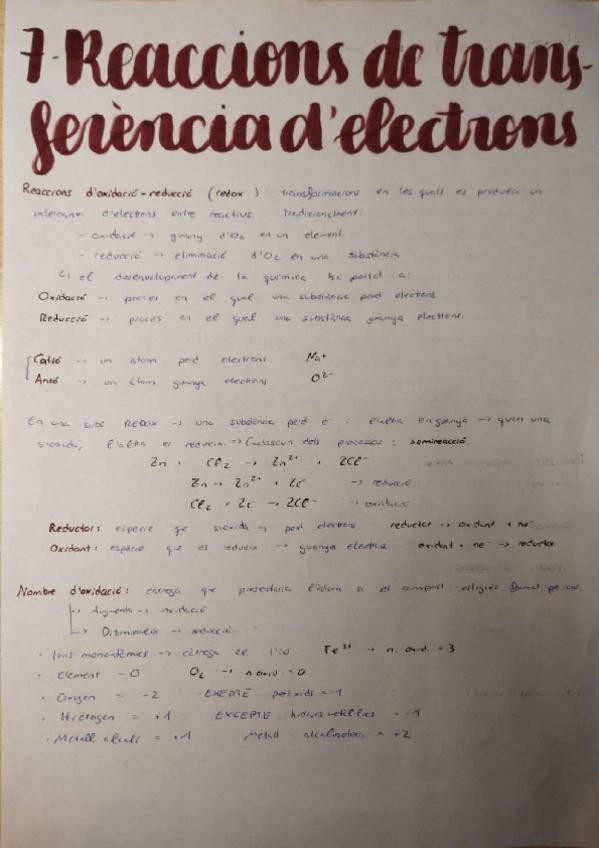 7-Reaccions de trans-
ferència d'electrons
Reaccions d'oxidació-reducció (redox): transformacions en les quals es produeix un
intercanvi d'electrons entre reactius. Tradicionalment:
- oxidació → guany d'O2 en un element
- reducció → eliminació d'O2 en una substància
↳ el desenvolupament de la química ha portat a:
Oxidació → procés en el qual una substància perd electrons
Reducció → procés en el qual una substància guanya electrons.
Catió → un àtom perd electrons Na⁺
Anió → un àtom guanya electrons O²⁻
En una subs REDOX → una substància perd e⁻ i l'altra en guanya → quan una
s'oxida, l'altra es redueix. → Cadascun dels processos: semireacció.
Zn + Cl2 → Zn²⁺ + 2Cl⁻
Zn → Zn²⁺ + 2e⁻ → reducció
Cl2 + 2e⁻ → 2Cl⁻ → oxidació
Reductor: espècie que s'oxida → perd electrons. reductor → oxidant + ne⁻
Oxidant: espècie que es redueix → guanya electrons oxidant + ne⁻ → reductor
Nombre d'oxidació: càrrega que presentaria l'àtom si el compost estigués format per ions.
↳ Augmenta → oxidació
↳ Disminueix → reducció.
· Ions monoatòmics → càrrega de l'ió Fe³⁺ → n. oxid. = 3
· Element = 0 O2 → n oxid. = 0
· Oxigen = -2 EXEPTE peròxids = -1
· Hidrogen = +1 EXCEPTE hidrurs metàl·lics = -1
· Metall alcalí = +1 Metall alcalinoterri = +2